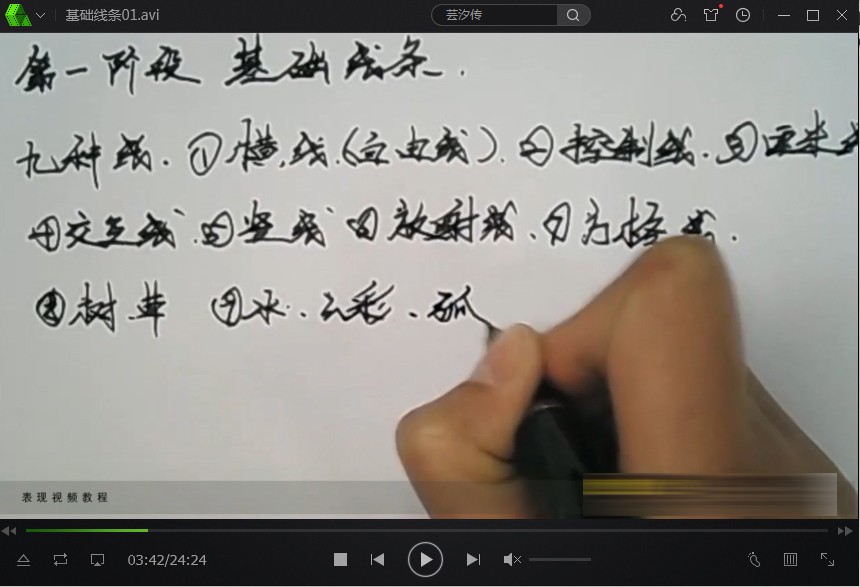 基础线条01.avi
芸汐传
第一阶段 基础线条.
九种线.①横线.(自由线).②控制线.③厘米线
④交叉线.⑤竖线⑥放射线.⑦
⑧树.草 ⑨水.云彩.弧
表现视频教程
03:42/24:24